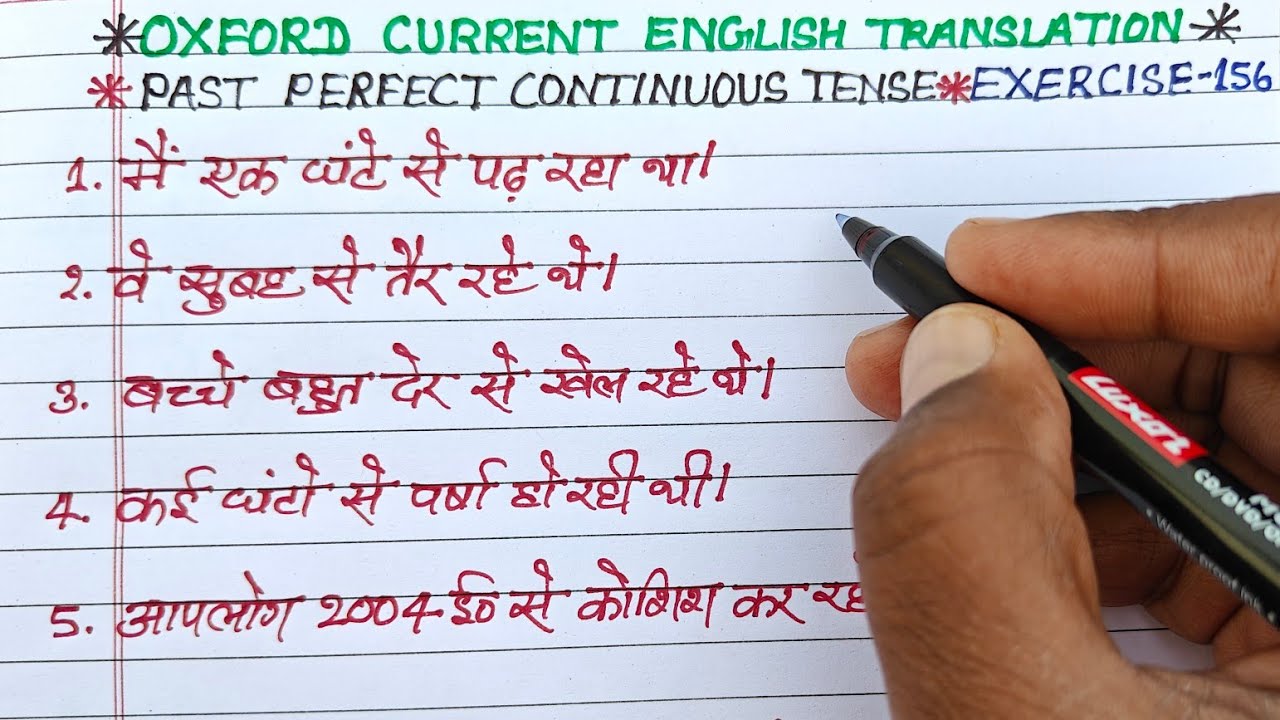 *OXFORD CURRENT ENGLISH TRANSLATION*
*PAST PERFECT CONTINUOUS TENSE*EXERCISE-156
1. मैं एक घंटे से पढ़ रहा था।
2. वे सुबह से तैर रहे थे।
3. बच्चे बहुत देर से खेल रहे थे।
4. कई घंटो से वर्षा हो रही थी।
5. आपलोग 2004 ई० से कोशिश कर
LUXOR
CD/DVD/O